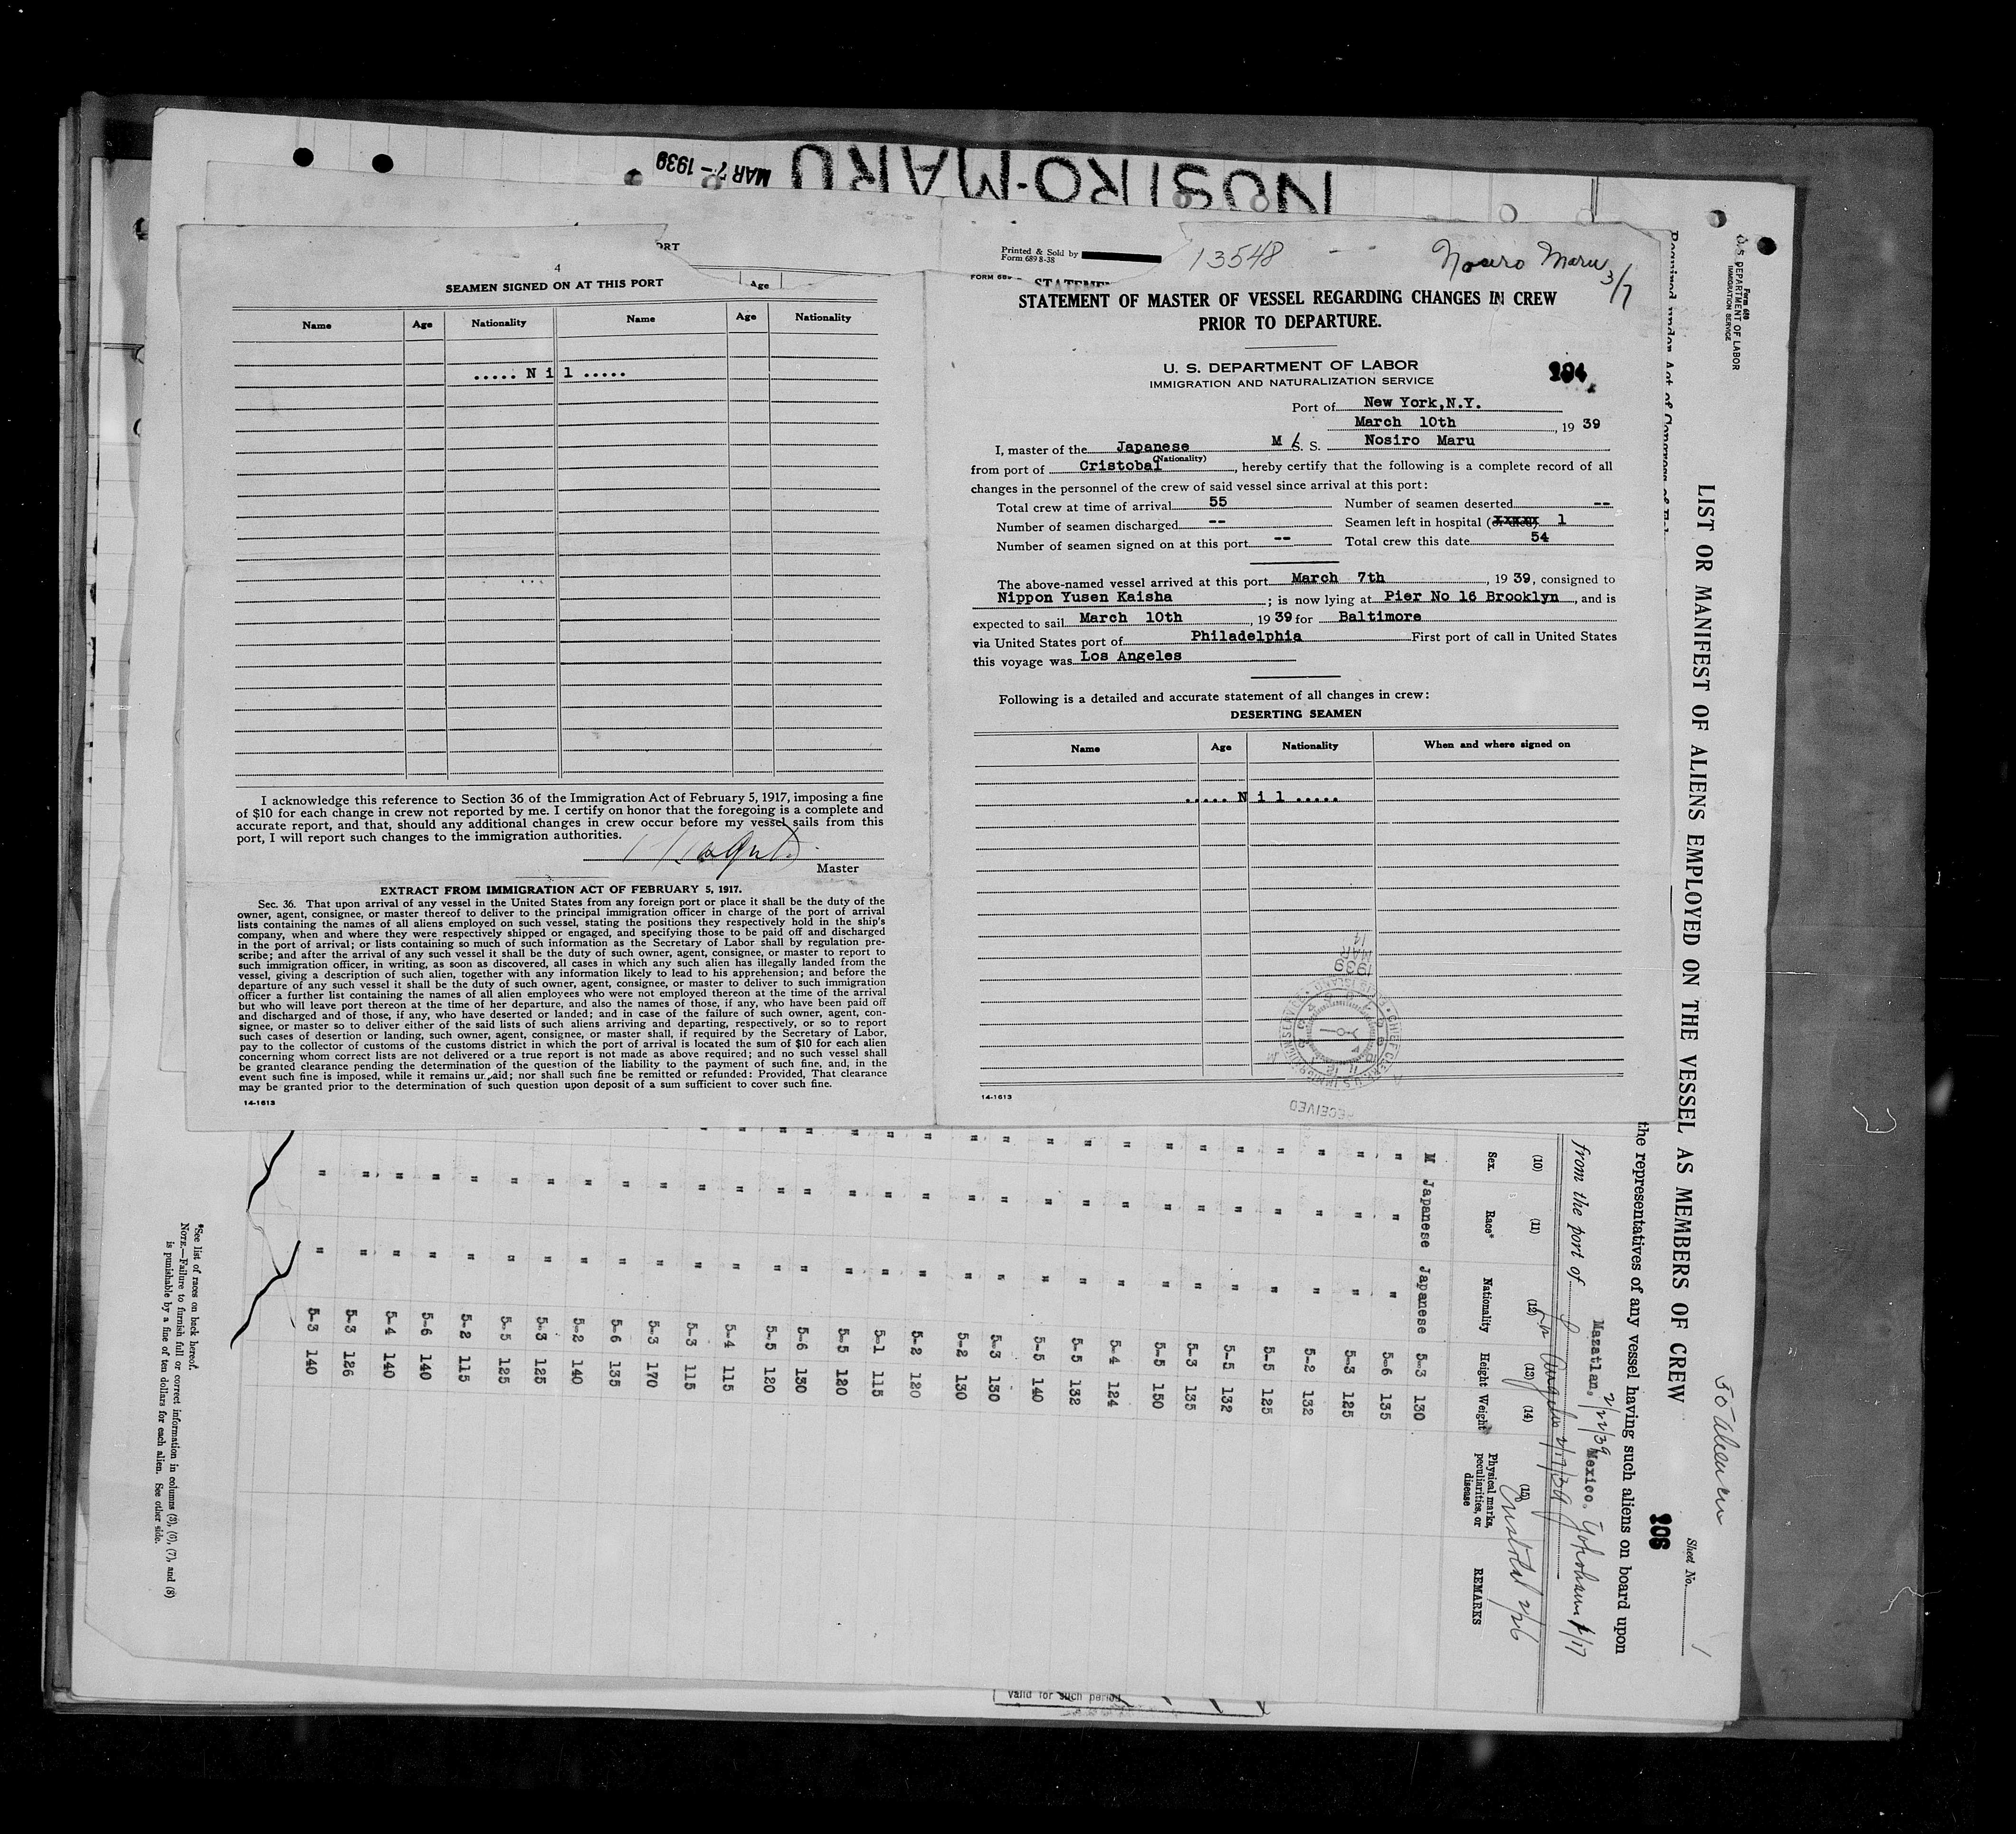 NOSIRO-MARU
MAR 7-1939
ORT
Age
4
SEAMEN SIGNED ON AT THIS PORT
Name Age Nationality Name Age Nationality
.....Nil.....
I acknowledge this reference to Section 36 of the Immigration Act of February 5, 1917, imposing a fine
of $10 for each change in crew not reported by me. I certify on honor that the foregoing is a complete and
accurate report, and that, should any additional changes in crew occur before my vessel sails from this
port, I will report such changes to the immigration authorities.
Master
EXTRACT FROM IMMIGRATION ACT OF FEBRUARY 5, 1917.
Sec. 36. That upon arrival of any vessel in the United States from any foreign port or place it shall be the duty of the
owner, agent, consignee, or master thereof to deliver to the principal immigration officer in charge of the port of arrival
lists containing the names of all aliens employed on such vessel, stating the positions they respectively hold in the ship's
company, when and where they were respectively shipped or engaged, and specifying those to be paid off and discharged
in the port of arrival; or lists containing so much of such information as the Secretary of Labor shall by regulation pre-
scribe; and after the arrival of any such vessel it shall be the duty of such owner, agent, consignee, or master to report to
such immigration officer, in writing, as soon as discovered, all cases in which any such alien has illegally landed from the
vessel, giving a description of such alien, together with any information likely to lead to his apprehension; and before the
departure of any such vessel it shall be the duty of such owner, agent, consignee, or master to deliver to such immigration
officer a further list containing the names of all alien employees who were not employed thereon at the time of the arrival
but who will leave port thereon at the time of her departure, and also the names of those, if any, who have been paid off
and discharged and of those, if any, who have deserted or landed; and in case of the failure of such owner, agent, con-
signee, or master so to deliver either of the said lists of such aliens arriving and departing, respectively, or so to report
such cases of desertion or landing, such owner, agent, consignee, or master shall, if required by the Secretary of Labor,
pay to the collector of customs of the customs district in which the port of arrival is located the sum of $10 for each alien
concerning whom correct lists are not delivered or a true report is not made as above required; and no such vessel shall
be granted clearance pending the determination of the question of the liability to the payment of such fine, and, in the
event such fine is imposed, while it remains unpaid; nor shall such fine be remitted or refunded: Provided, That clearance
may be granted prior to the determination of such question upon deposit of a sum sufficient to cover such fine.
14-1613
Printed & Sold by
Form 689 8-38
13548
Nosiro Maru
3/7
FORM 689
STATEMENT OF MASTER OF VESSEL REGARDING CHANGES IN CREW
PRIOR TO DEPARTURE.
U. S. DEPARTMENT OF LABOR
IMMIGRATION AND NATURALIZATION SERVICE
Port of New York,N.Y.
March 10th, 19 39
I, master of the Japanese M/S. S. Nosiro Maru
(Nationality)
from port of Cristobal, hereby certify that the following is a complete record of all
changes in the personnel of the crew of said vessel since arrival at this port:
Total crew at time of arrival 55 Number of seamen deserted --
Number of seamen discharged -- Seamen left in hospital (or died) 1
Number of seamen signed on at this port -- Total crew this date 54
The above-named vessel arrived at this port March 7th, 19 39, consigned to
Nippon Yusen Kaisha; is now lying at Pier No 16 Brooklyn, and is
expected to sail March 10th, 19 39 for Baltimore
via United States port of Philadelphia First port of call in United States
this voyage was Los Angeles
Following is a detailed and accurate statement of all changes in crew:
DESERTING SEAMEN
Name Age Nationality When and where signed on
.....Nil.....
1939
MAR
14
RECEIVED
14-1613
Form 689
U. S. DEPARTMENT OF LABOR
IMMIGRATION SERVICE
Sheet No. 1
LIST OR MANIFEST OF ALIENS EMPLOYED ON THE VESSEL AS MEMBERS OF CREW
106
the representatives of any vessel having such aliens on board upon
Mazatlan, Mexico. Yokohama 1/17
2/22/39
from the port of Los Angeles 2/17/39
Cristobal 2/26
(10) (11) (12) (13) (14) (15)
Sex. Race* Nationality Height Weight Physical marks, peculiarities, or disease REMARKS
M Japanese Japanese 5-3 130
" " " 5-6 135
" " " 5-3 125
" " " 5-2 132
" " " 5-5 125
" " " 5-5 132
" " " 5-3 135
" " " 5-5 150
" " " 5-4 124
" " " 5-5 132
" " " 5-5 140
" " " 5-3 130
" " " 5-2 130
" " " 5-2 120
" " " 5-1 115
" " " 5-5 120
" " " 5-6 130
" " " 5-5 120
" " " 5-4 115
" " " 5-3 115
" " " 5-3 170
" " " 5-6 135
" " " 5-2 140
" " " 5-3 125
" " " 5-5 125
" " " 5-2 115
" " " 5-6 140
" " " 5-4 140
" " " 5-3 126
" " " 5-3 140
*See list of races on back hereof.
NOTE.—Failure to furnish full or correct information in columns (3), (6), (7), and (8)
is punishable by a fine of ten dollars for each alien. See other side.
valid for such period